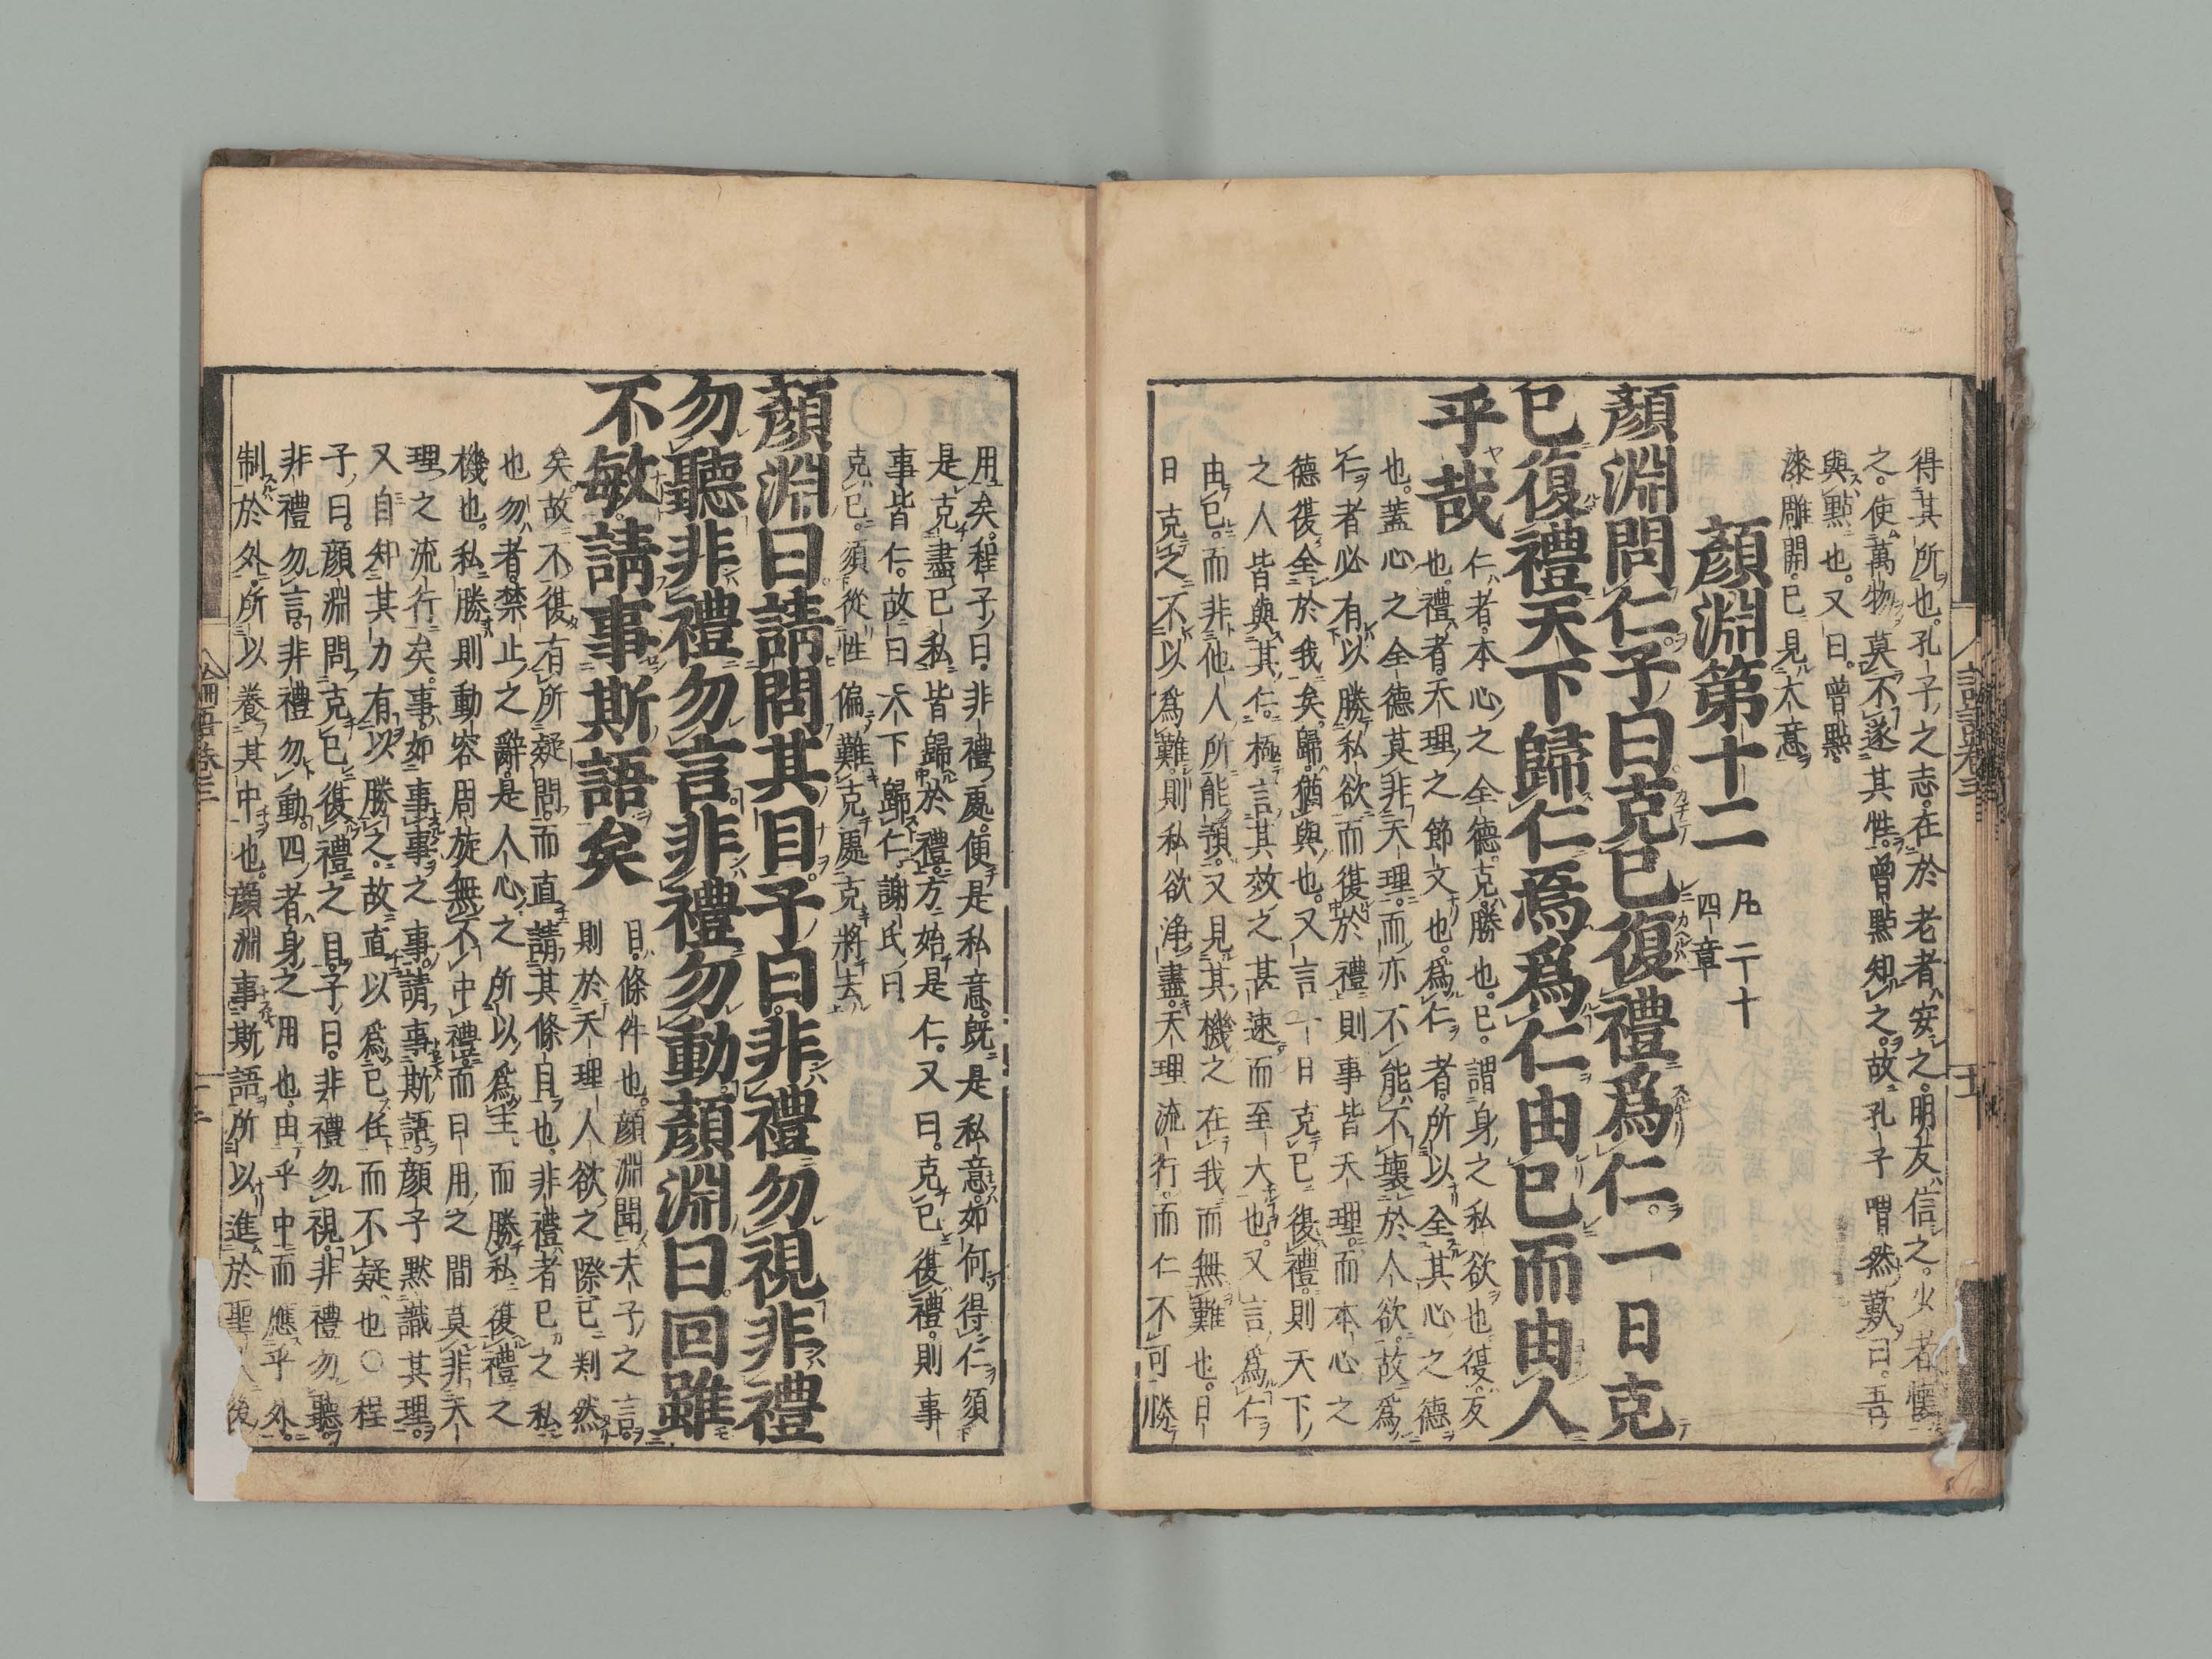 得其所也。孔子之志。在於老者安之。朋友信之。少者懷
之。使萬物莫不遂其性。曾點知之。故孔子喟然歎曰。吾
與點也。又曰。曾點
漆雕開。已見大意。
顔淵第十二 凡二十四章
顔淵問仁。子曰克己復禮爲仁。一日克
己復禮天下歸仁焉爲仁由己而由人
乎哉 仁者。本心之全德。克。勝也。己。謂身之私欲也。復。反
也。禮者。天理之節文也。爲仁者。所以全其心之德
也。蓋心之全德莫非天理。而亦不能不壞於人欲。故爲
仁者必有以勝私欲而復於禮。則事皆天理。而本心之
德復全於我矣。歸。猶與也。又言一日克己復禮。則天下
之人皆與其仁。極言其效之甚速而至大也。又言爲仁
由己。而非他人所能預。又見其機之在我而無難也。日
日克之。不以爲難。則私欲淨盡。天理流行。而仁不可勝
用矣。程子曰。非禮處。便是私意。既是私意。如何得仁。須
是克盡己私。皆歸於禮。方始是仁。又曰。克己復禮。則事
事皆仁。故曰天下歸仁。謝氏曰
克己。須從性偏難克處克將去
顔淵曰請問其目。子曰。非禮勿視非禮
勿聽非禮勿言。非禮勿動。顔淵曰。回雖
不敏。請事斯語矣 目。條件也。顔淵聞夫子之言。
則於天理人欲之際。已判然
矣。故不復有所疑問。而直請其條目也。非禮者己之私
也。勿者。禁止之辭。是人心之所以爲主。而勝私復禮之
機也。私勝則動容周旋無不中禮。而日用之間莫非天
理之流行矣。事。如事事之事。請事斯語。顔子默識其理。
又自知其力有以勝之。故直以爲己任而不疑也○程
子曰。顔淵問克己復禮之目。子曰。非禮勿視。非禮勿聽。
非禮勿言。非禮勿動。四者身之用也。由乎中而應乎外。
制於外。所以養其中也。顔淵事斯語。所以進於聖人後